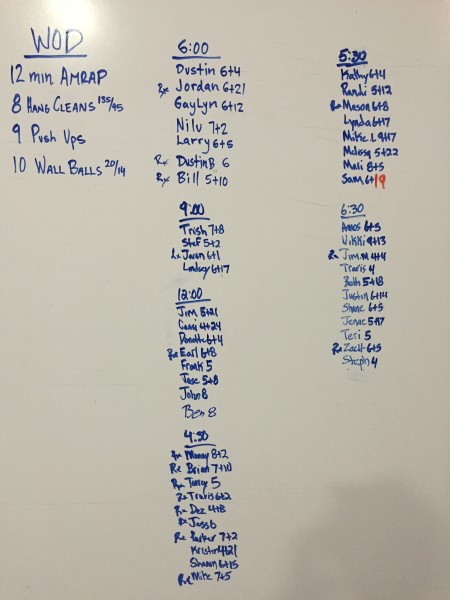 WOD
12 min AMRAP
8 HANG CLEANS 135/95
9 PUSH UPS
10 WALL BALLS 20/14
6:00
Dustin 6+4
Rx Jordan 6+21
GayLyn 6+12
Nilu 7+2
Larry 6+5
Rx Dustin B 6
Rx Bill 5+10
9:00
Trish 7+8
Stef 5+2
Rx Jason 6+1
Lindsey 6+17
12:00
Jim 5+21
Casey 4+24
Donette 6+4
Rx Earl 6+8
Frank 5
Jose 5+8
John 8
Ben 8
4:30
Rx Manny 8+2
Rx Brian 7+10
Rx 5
Rx Travis 6+2
Rx Dez 4+8
Rx Jass 6
Rx Parker 7+2
Kristin 4+21
Shawn 6+15
Rx Mike 7+5
5:30
Kathy 6+4
Randi 5+12
Rx Mason 6+8
Lynda 6+17
Mike L 9+17
Melissa 5+22
Mali 8+5
Sam 6+19
6:30
Amos 6+3
Vikki 9+13
Rx Jim.M 4+4
Travis 4
Beth 5+18
Justin 6+14
Shane 6+5
Jenae 5+17
Teri 5
Rx Zach 6+5
Steph 4